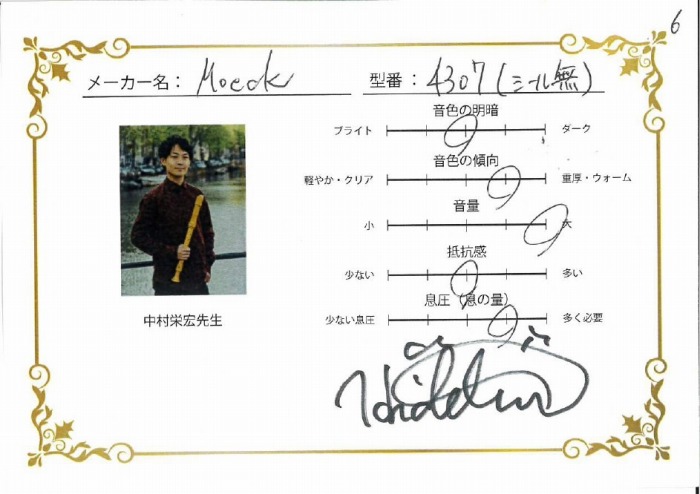 6
メーカー名： Moeck 型番： 4307 (ミール無)
音色の明暗
ブライト ダーク
音色の傾向
軽やか・クリア 重厚・ウォーム
音量
小 大
抵抗感
少ない 多い
息圧（息の量）
少ない息圧 多く必要
中村栄宏先生